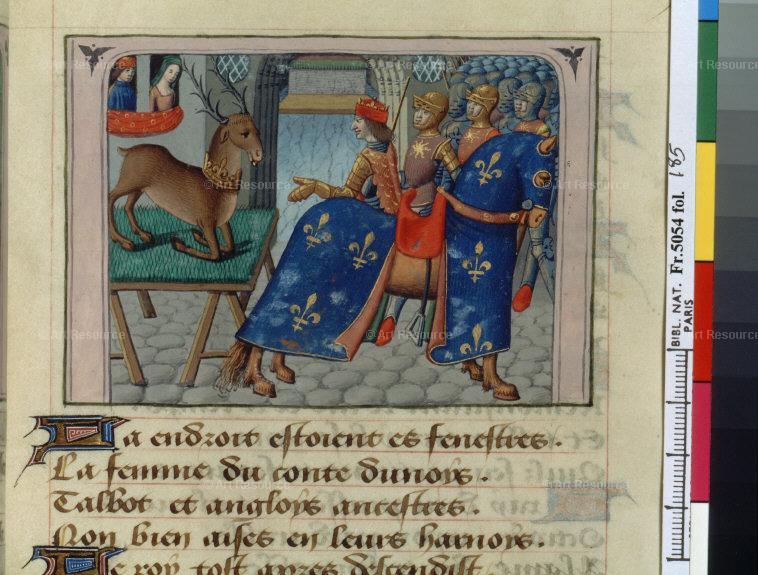 La endroit estoient es fenestres.
La femme du conte dunoys.
Talbot et angloys ancestres.
Non bien aises en leurs harnoys.
Le roy tost apres descendist.
BIBL. NAT. Fr.5054 fol. 185
PARIS
© Art Resource